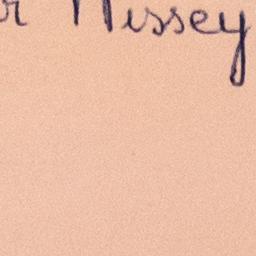 r Missey